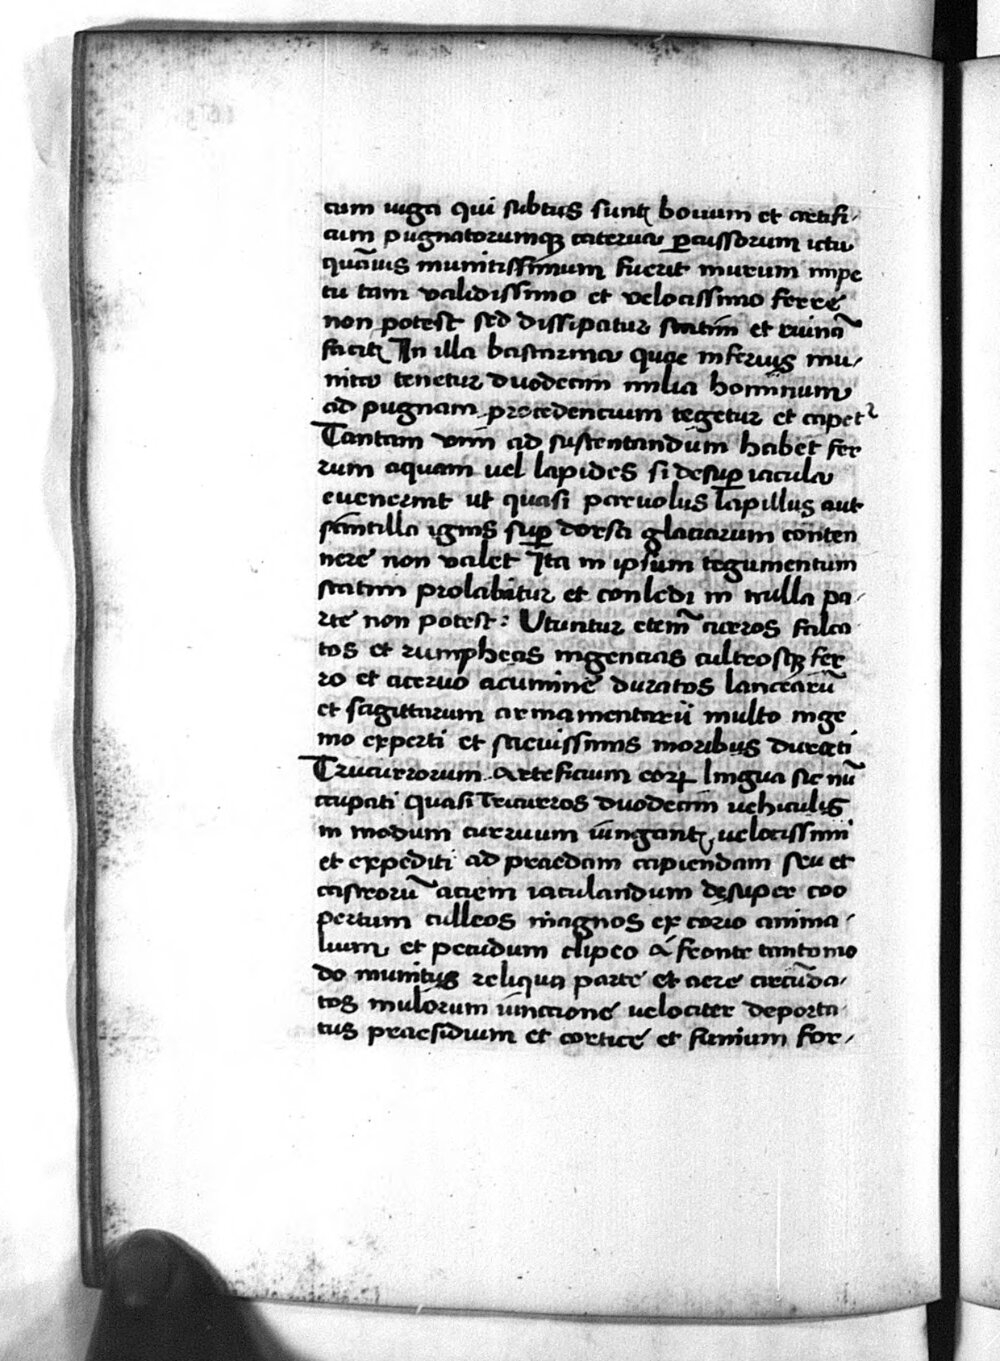 cum iuga qui subtus sunt bouum et artifi-
cum pugnatorumqꝫ caterua ꝑcussorum ictu
quāuis munitissimum fuerit murum impe
tu tam validissimo et velocissimo ferre
non potest sed dissipatur statim et ruinā
facit In illa bastarma quae inferius mu-
nita tenetur duodecim milia hominum
ad pugnam procedencium tegetur et capet᷑
Tantam vim ad sustentandum habet fer
rum aquam vel lapides si desuꝑ iacula
euenerint ut quasi paruolus lapillus aut
scintilla ignis suꝑ dorsa glaciarum conten
nere non valet Ita in ipsum tegumentum
statim prolabitur et conledi in nulla pa-
rte non potest: Utuntur etem̄ curros falca
tos et rumpheas ingencias cultrosqꝫ fer
ro et aceruo acumine duratos lancearū
et sagittarum armamentarii multo inge
nio experti et saeuissimis moribus durati
Trucurrorum Arteficium eoꝝ lingua sic nū
cupati quasi Tricurros duodecim uehiculis
in modum curruum iungant uelocissimi
et expediti ad praedam capiendam seu et
castrorū aciem iaculandum desuper coo
pertum culleos magnos ex corio anima-
lium et pecudum clipeo a fronte tantomo
do munitus reliqua parte et aere circūda-
tos mulorum iunctione uelociter deporta-
tus praesidium et cortice et funium for-